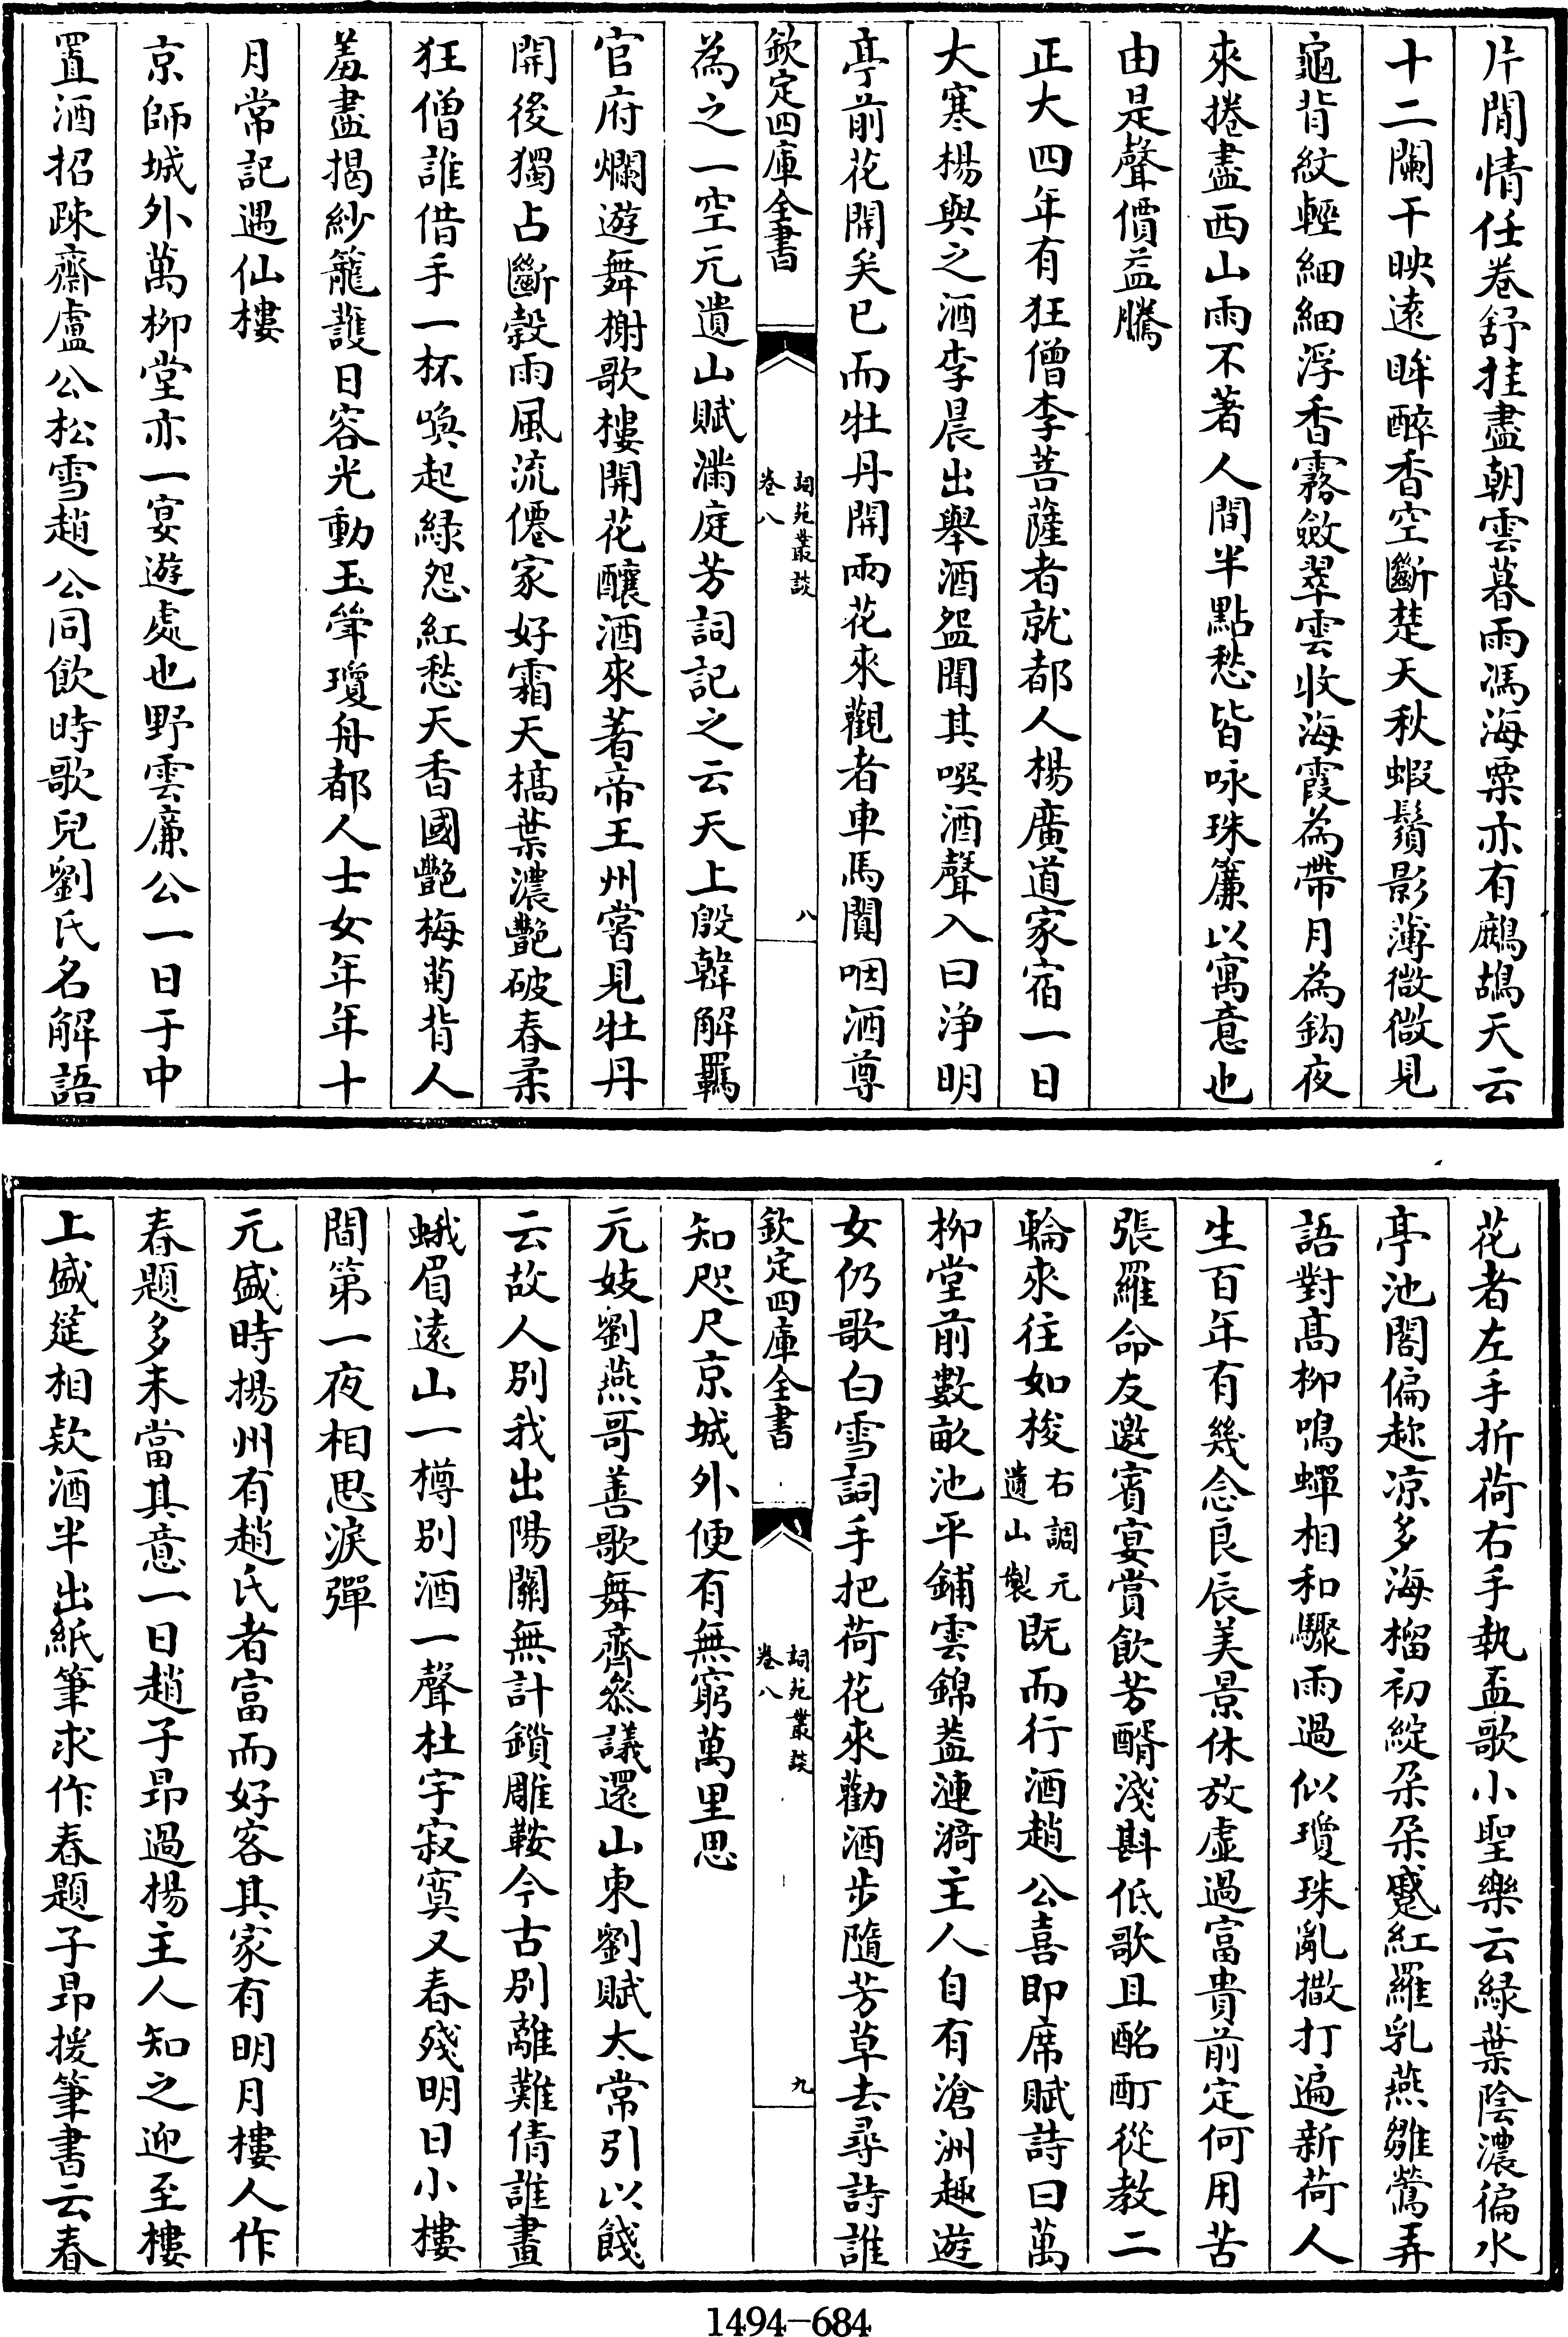 片閒情任卷舒挂盡朝雲暮雨馮海粟亦有鷓鴣天云
十二闌干映遠眸醉香空斷楚天秋蝦鬚影薄微微見
龜背紋輕細細浮香霧斂翠雲收海霞為帶月為鈎夜
來捲盡西山雨不著人間半點愁皆咏珠簾以寓意也
由是聲價益騰
正大四年有狂僧李菩薩者就都人楊廣道家宿一日
大寒楊與之酒李晨出舉酒盌聞其噀酒聲入曰淨明
亭前花開矣已而牡丹開兩花來觀者車馬闐咽酒尊
欽定四庫全書
詞苑叢談
卷八
八
為之一空元遺山賦滿庭芳詞記之云天上殷韓解羈
官府爛遊舞榭歌樓開花釀酒來著帝王州嘗見牡丹
開後獨占斷穀雨風流僊家好霜天槁葉濃艷破春柔
狂僧誰借手一杯喚起綠怨紅愁天香國艷梅菊背人
羞盡揭紗籠護日容光動玉斝瓊舟都人士女年年十
月常記遇仙樓
京師城外萬柳堂亦一宴遊處也野雲廉公一日于中
置酒招疎齋盧公松雪趙公同飲時歌兒劉氏名解語
花者左手折荷右手執盃歌小聖樂云綠葉陰濃徧水
亭池閣偏趂凉多海榴初綻朶朶蹙紅羅乳燕雛鶯弄
語對髙柳鳴蟬相和驟雨過似瓊珠亂撒打遍新荷人
生百年有幾念良辰美景休放虚過富貴前定何用苦
張羅命友邀賓宴賞飲芳醑淺斟低歌且酩酊從教二
輪來往如梭右調元遺山製既而行酒趙公喜即席賦詩曰萬
柳堂前數畝池平鋪雲錦葢漣漪主人自有滄洲趣遊
女仍歌白雪詞手把荷花來勸酒步隨芳草去尋詩誰
欽定四庫全書
詞苑叢談
卷八
九
知咫尺京城外便有無窮萬里思
元妓劉燕哥善歌舞齊叅議還山東劉賦太常引以餞
云故人別我出陽關無計鎖雕鞍今古別離難倩誰畫
蛾眉遠山一樽別酒一聲杜宇寂寞又春殘明日小樓
間第一夜相思淚彈
元盛時揚州有趙氏者富而好客其家有明月樓人作
春題多未當其意一日趙子昂過揚主人知之迎至樓
上盛筵相欵酒半出紙筆求作春題子昂援筆書云春
1494-684